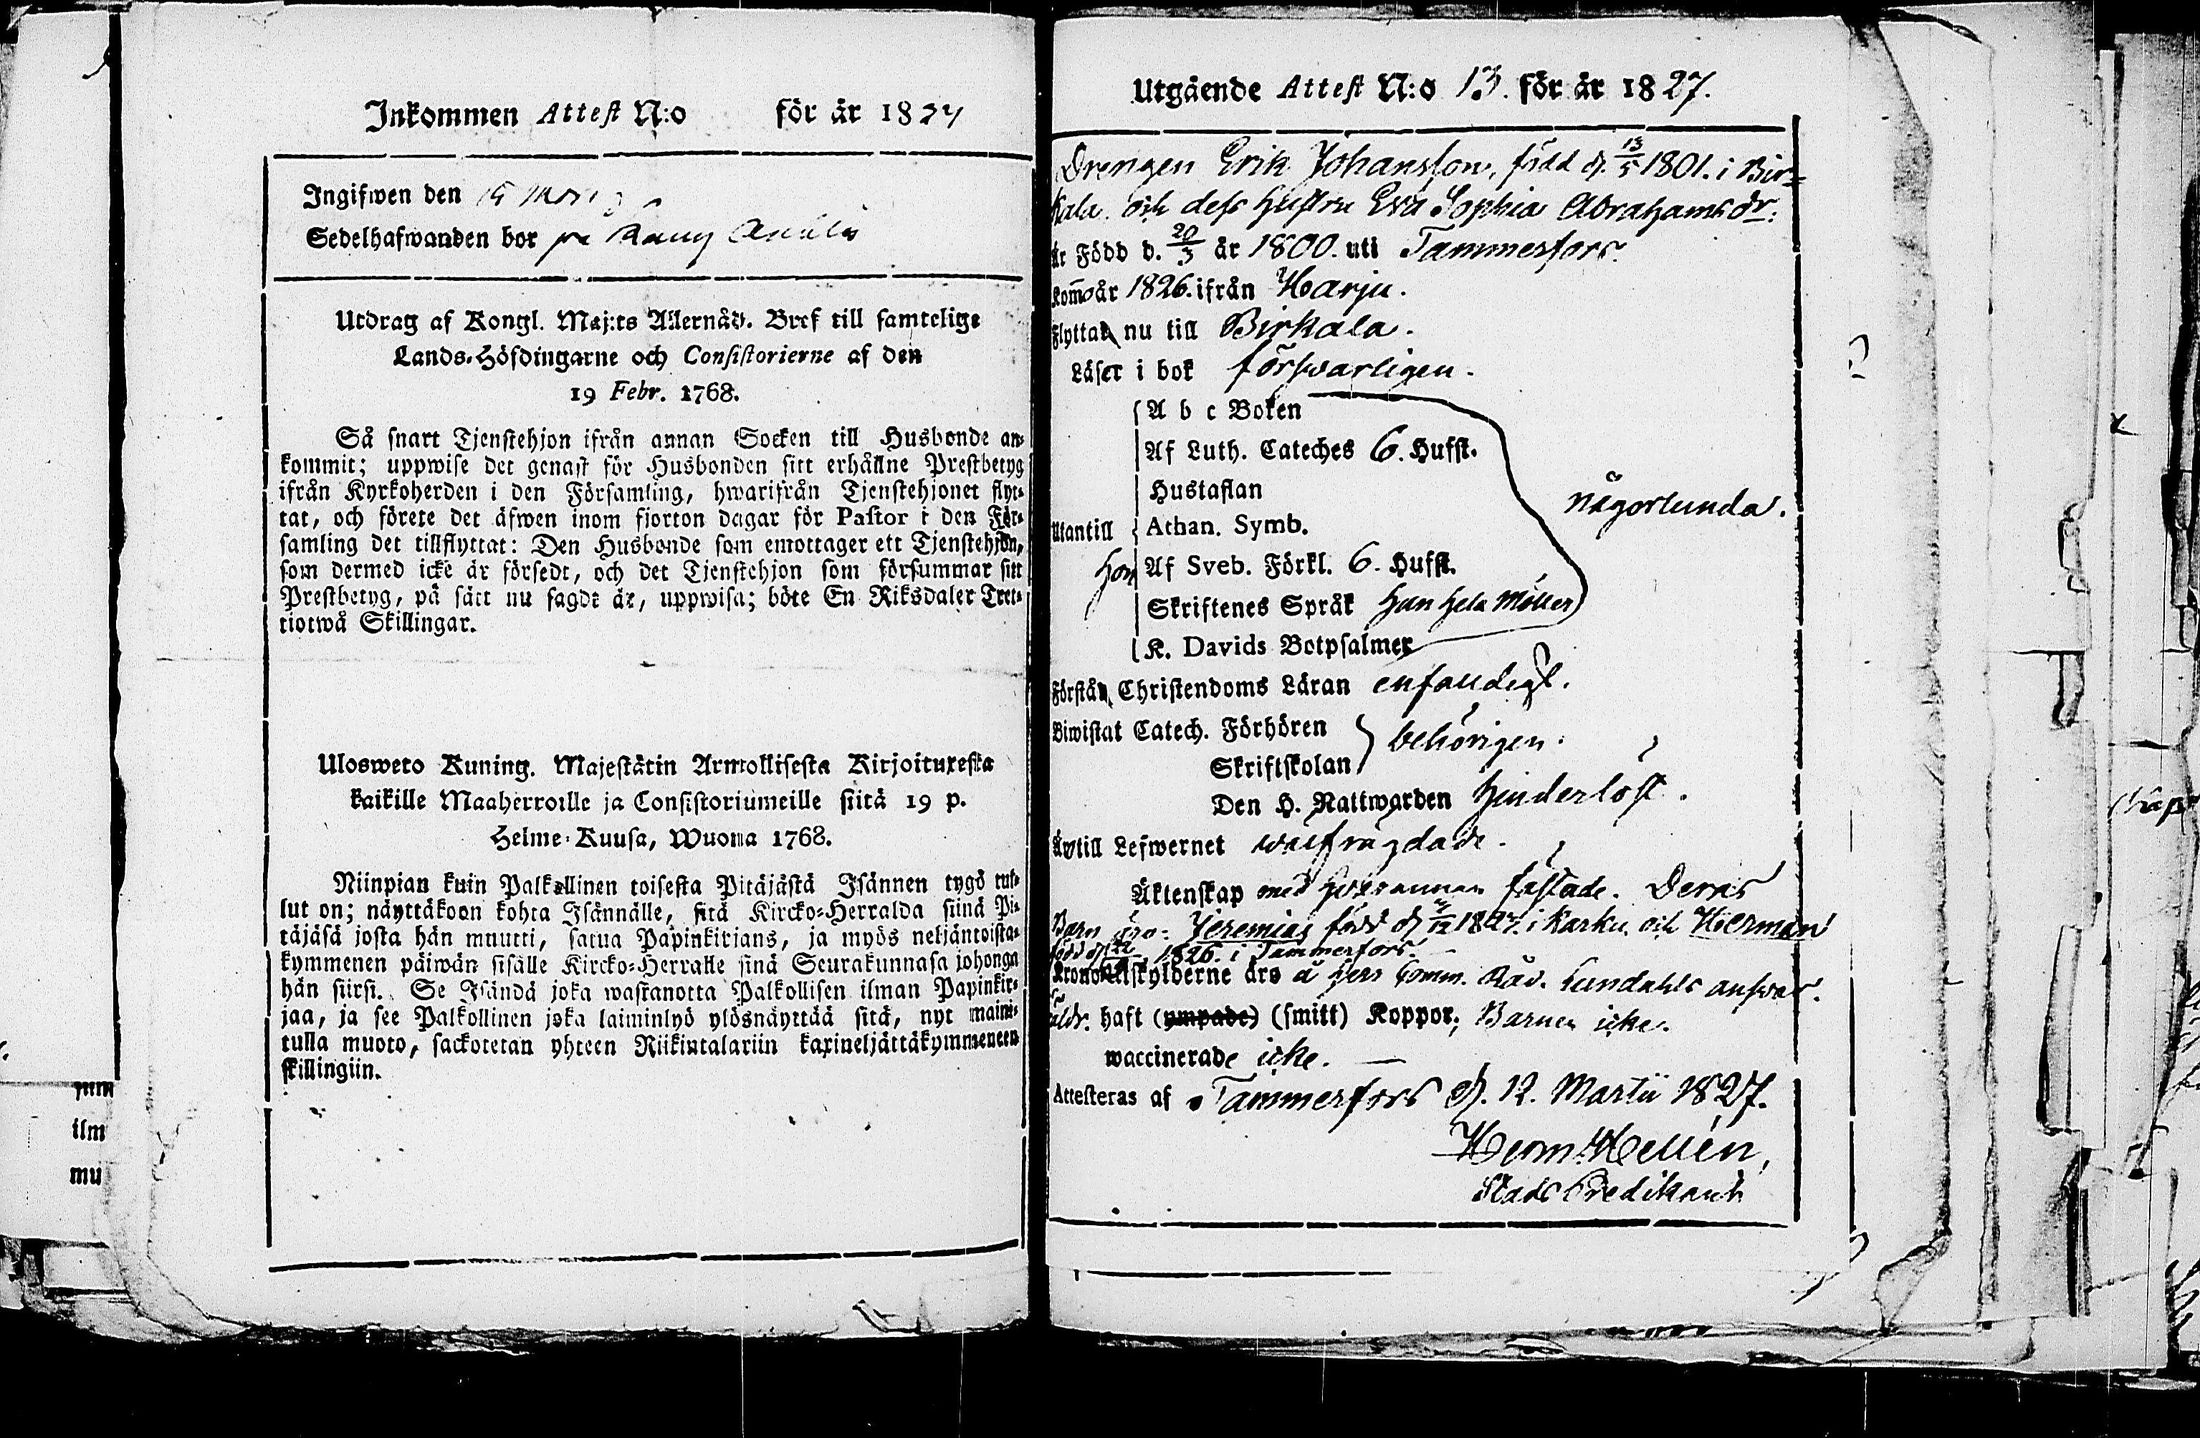 Inkommen Attest N:o för år 1827
Ingifwen den 19
Sedelhafwanden bor
Utdrag af Kongl. Maj:ts Allernåd. Bref till samtelige
Lands-Höfdingarne och Consistorierne af den
19 Febr. 1768.
Så snart Tjenstehjon ifrån annan Socken till Husbonde an-
kommit; uppwise det genast för Husbonden sitt erhållne Prestbetyg
ifrån Kyrkoherden i den Församling, hwarifrån Tjenstehjonet flyt-
tat, och förete det äfwen inom fjorton dagar för Pastor i den För-
samling det tillflyttat: Den Husbonde som emottager ett Tjenstehjon,
som dermed icke är försedt, och det Tjenstehjon som försummar sitt
Prestbetyg, på sätt nu sagdt är, uppwisa; böte En Riksdaler Tret-
tiotwå Skillingar.
Ulosweto Kuning. Majestätin Armollisesta Kirjoituxesta
kaikille Maaherroille ja Consistoriumeille siitä 19 p.
Helme-Kuusa, Wuonna 1768.
Niinpian kuin Palkollinen toisesta Pitäjästä Isännen tygö tul-
lut on; näyttäkoon kohta Isännälle, sitä Kircko-Herralda siinä Pi-
täjäsä josta hän muutti, saatua Papinkirjans, ja myös neljäntoista-
kymmenen päiwän sisälle Kircko-Herralle siinä Seurakunnasa johonga
hän siirsi. Se Isändä joka wastanotta Palkollisen ilman Papinkir-
jaa, ja see Palkollinen joka laiminlyö ylösnäyttää sitä, nyt maini-
tulla muoto, sackotetan yhteen Riikintalariin kaxineljättäkymmeneen
skillingiin.
Utgående Attest N:o 13. för år 1827.
Drengen Erik Johansson, född d. 13/5 1801. i Bir-
kala och dess hustru Eva Sophia Abrahamsdr.
är Född d. 20/3 år 1800. uti Tammerfors.
Kom år 1826. ifrån Harju.
Flyttar nu till Birkala.
Läser i bok förswarligen.
A b c Boken
Af Luth. Cateches 6. Hufst.
Hustaflan
någorlunda.
Utantill Athan. Symb.
hon Af Sveb. Förkl. 6. Hufst.
Skriftenes Språk han hela Möller
K. Davids Botpsalmer
Förstår Christendoms Läran enfaldigt.
Biwistat Catech. Förhören
behörigen.
Skriftskolan
Den H. Nattwarden hinderlöst.
Är till Lefwernet wälfrägdade.
Äktenskap med hwarannan fästade. Deras
Barn äro: Jeremias född d. 1824. i Karku och Herman
född d. 1826. i Tammerfors.
Kronoutskylderne äro å Herr Comm. Råd. Lundahls answar.
haft (ympade) (smitt) Koppor, Barnen icke.
waccinerade icke.
Attesteras af Tammerfors d. 12. Martii 1827.
Herm: Hellén,
Stads Predikant
ilm
mu